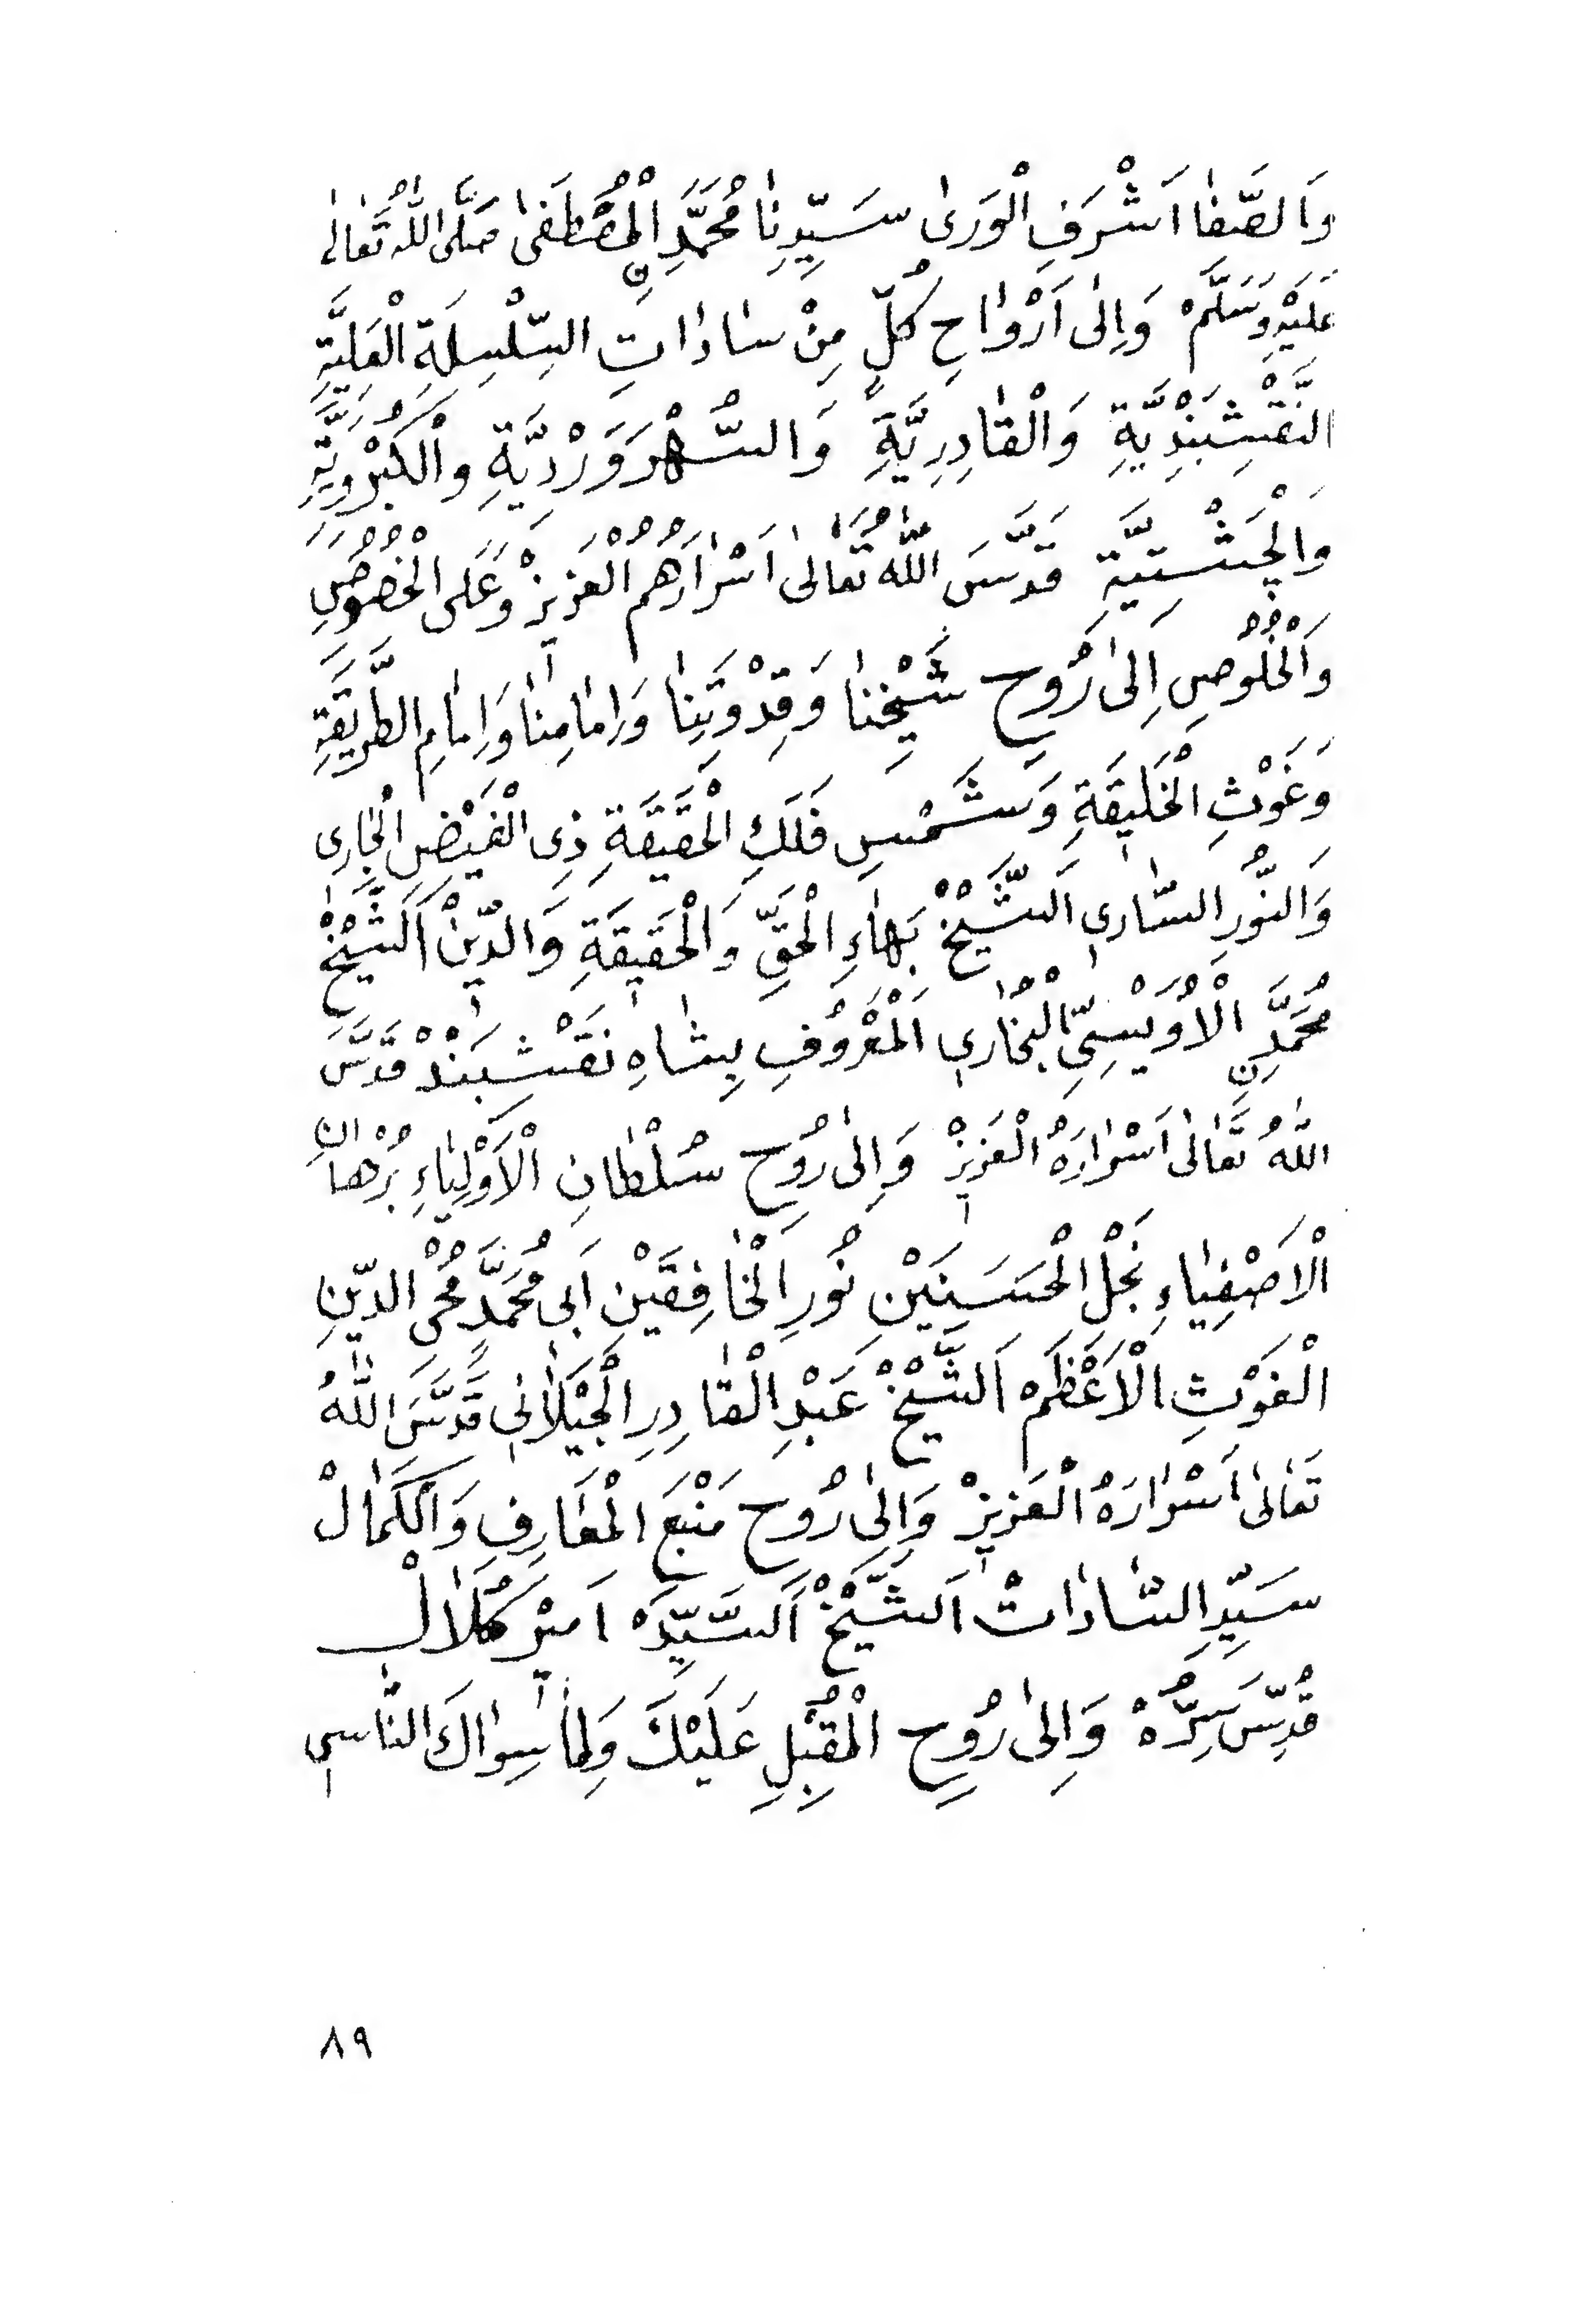 وَالصَّفٰا اَشْرَفِ الْوَرىٰ سَيِّدِنٰا مُحَمَّدٍنِ الْمُصْطَفىٰ صَلَّى اللّٰهُ تَعٰالىٰ
عَلَيْهِ وَسَلَّمْ وَاِلىٰ اَرْوٰاحِ كُلٍّ مِنْ سٰادٰاتِ السِّلْسِلَةِ الْعَلِيَّةِ
النَّقْشِبَنْدِيَّةِ وَالْقٰادِرِيَّةِ وَالسُّهْرَوَرْدِيَّةِ وَالْكُبْرَوِيَّةِ
وَالْچِشْتِيَّةِ قَدَّسَ اللّٰهُ تَعٰالىٰ اَسْرٰارَهُمُ الْعَزِيزْ وَعَلَى الْخُصُوصِ
وَالْخُلُوصِ اِلىٰ رُوحِ شَيْخِنٰا وَقِدْوَتِنٰا وَاِمٰامِنٰا وَاِمٰامِ الطَّرِيقَةِ
وَغَوْثِ الْخَلِيقَةِ وَشَمْسِ فَلَكِ الْحَقِيقَةِ ذِى الْفَيْضِ الْجٰارِى
وَالنُّورِ السّٰارِى اَلشَّيْخْ بَهٰاءِ الْحَقِّ وَالْحَقِيقَةِ وَالدِّينْ اَلشَّيْخْ
مُحَمَّدٍنِ الْاُوَيْسِىِّ الْبُخٰارِى اَلْمَعْرُوفِ بِشٰاهِ نَقْشِبَنْدْ قَدَّسَ
اللّٰهُ تَعٰالىٰ اَسْرٰارَهُ الْعَزِيزْ وَاِلىٰ رُوحِ سُلْطٰانِ الْاَوْلِيٰاءِ بُرْهٰانِ
الْاَصْفِيٰاءِ نَجْلِ الْحَسَنَيْنِ نُورِ الْخٰافِقَيْنِ اَبِى مُحَمَّدٍ مُحْىِ الدِّينِ
الْغَوْثِ الْاَعْظَمْ اَلشَّيْخْ عَبْدِ الْقٰادِرِ الْجِيْلٰانِى قَدَّسَ اللّٰهُ
تَعٰالىٰ اَسْرٰارَهُ الْعَزِيزْ وَاِلىٰ رُوحِ مَنْبَعِ الْمَعٰارِفِ وَالْكَمٰالْ
سَيِّدِ السّٰادٰاتْ اَلشَّيْخْ اَلسَّيِّدْ اَمِيْر كُلٰالْ
قُدِّسَ سِرُّهْ وَاِلىٰ رُوحِ الْمُقْبِلِ عَلَيْكَ وَلِمٰا سِوٰاكَ النّٰاسِى
٨٩